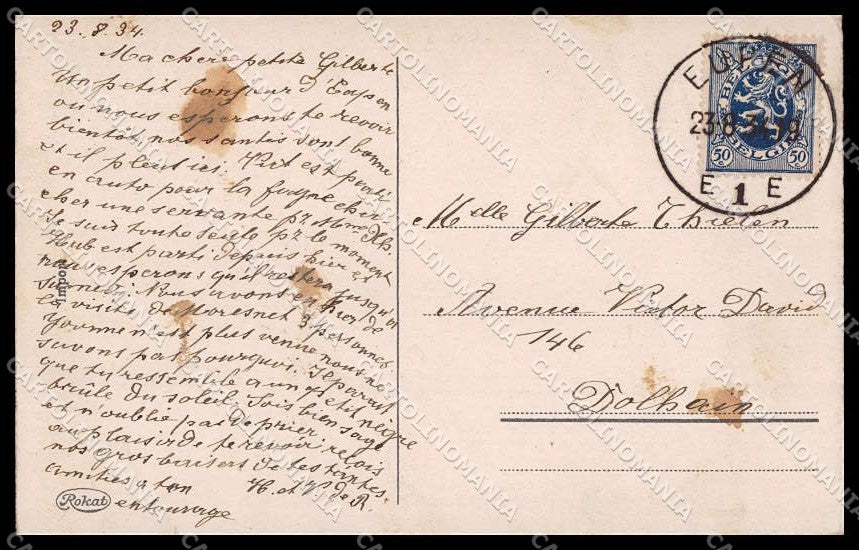 23.8.34.
Ma chère petite Gilberte
Un petit bonjour d'Eupen
ou nous esperons te revoir
bientôt, nos santés sont bonne
et il pleut ici. Vict est parti
en auto pour la
cher une servante pr Mme
Je suis toute seule pr le moment
Hub est parti depuis hier et
nous esperons qu'il restera jusqu'au
Nous avons eu hier de
la visite de Moresnet 3 personnes
Yvonne n'est plus venue nous ne
savons pas pourquoi. Il parait
que tu ressemble a un petit nègre
brûle du soleil. Sois bien sage
et n'oublie pas de prier
au plaisir de te revoir reçois
nos gros baisers de tes tantes.
amitiés a ton H. et V. de R.
entourage
Import
Rokat
EUPEN
23-8-34
E 1 E
BELGIE
50 50
Melle Gilberte Thielen
Avenue Victor David
146
Dolhain
CARTOLINOMANIA